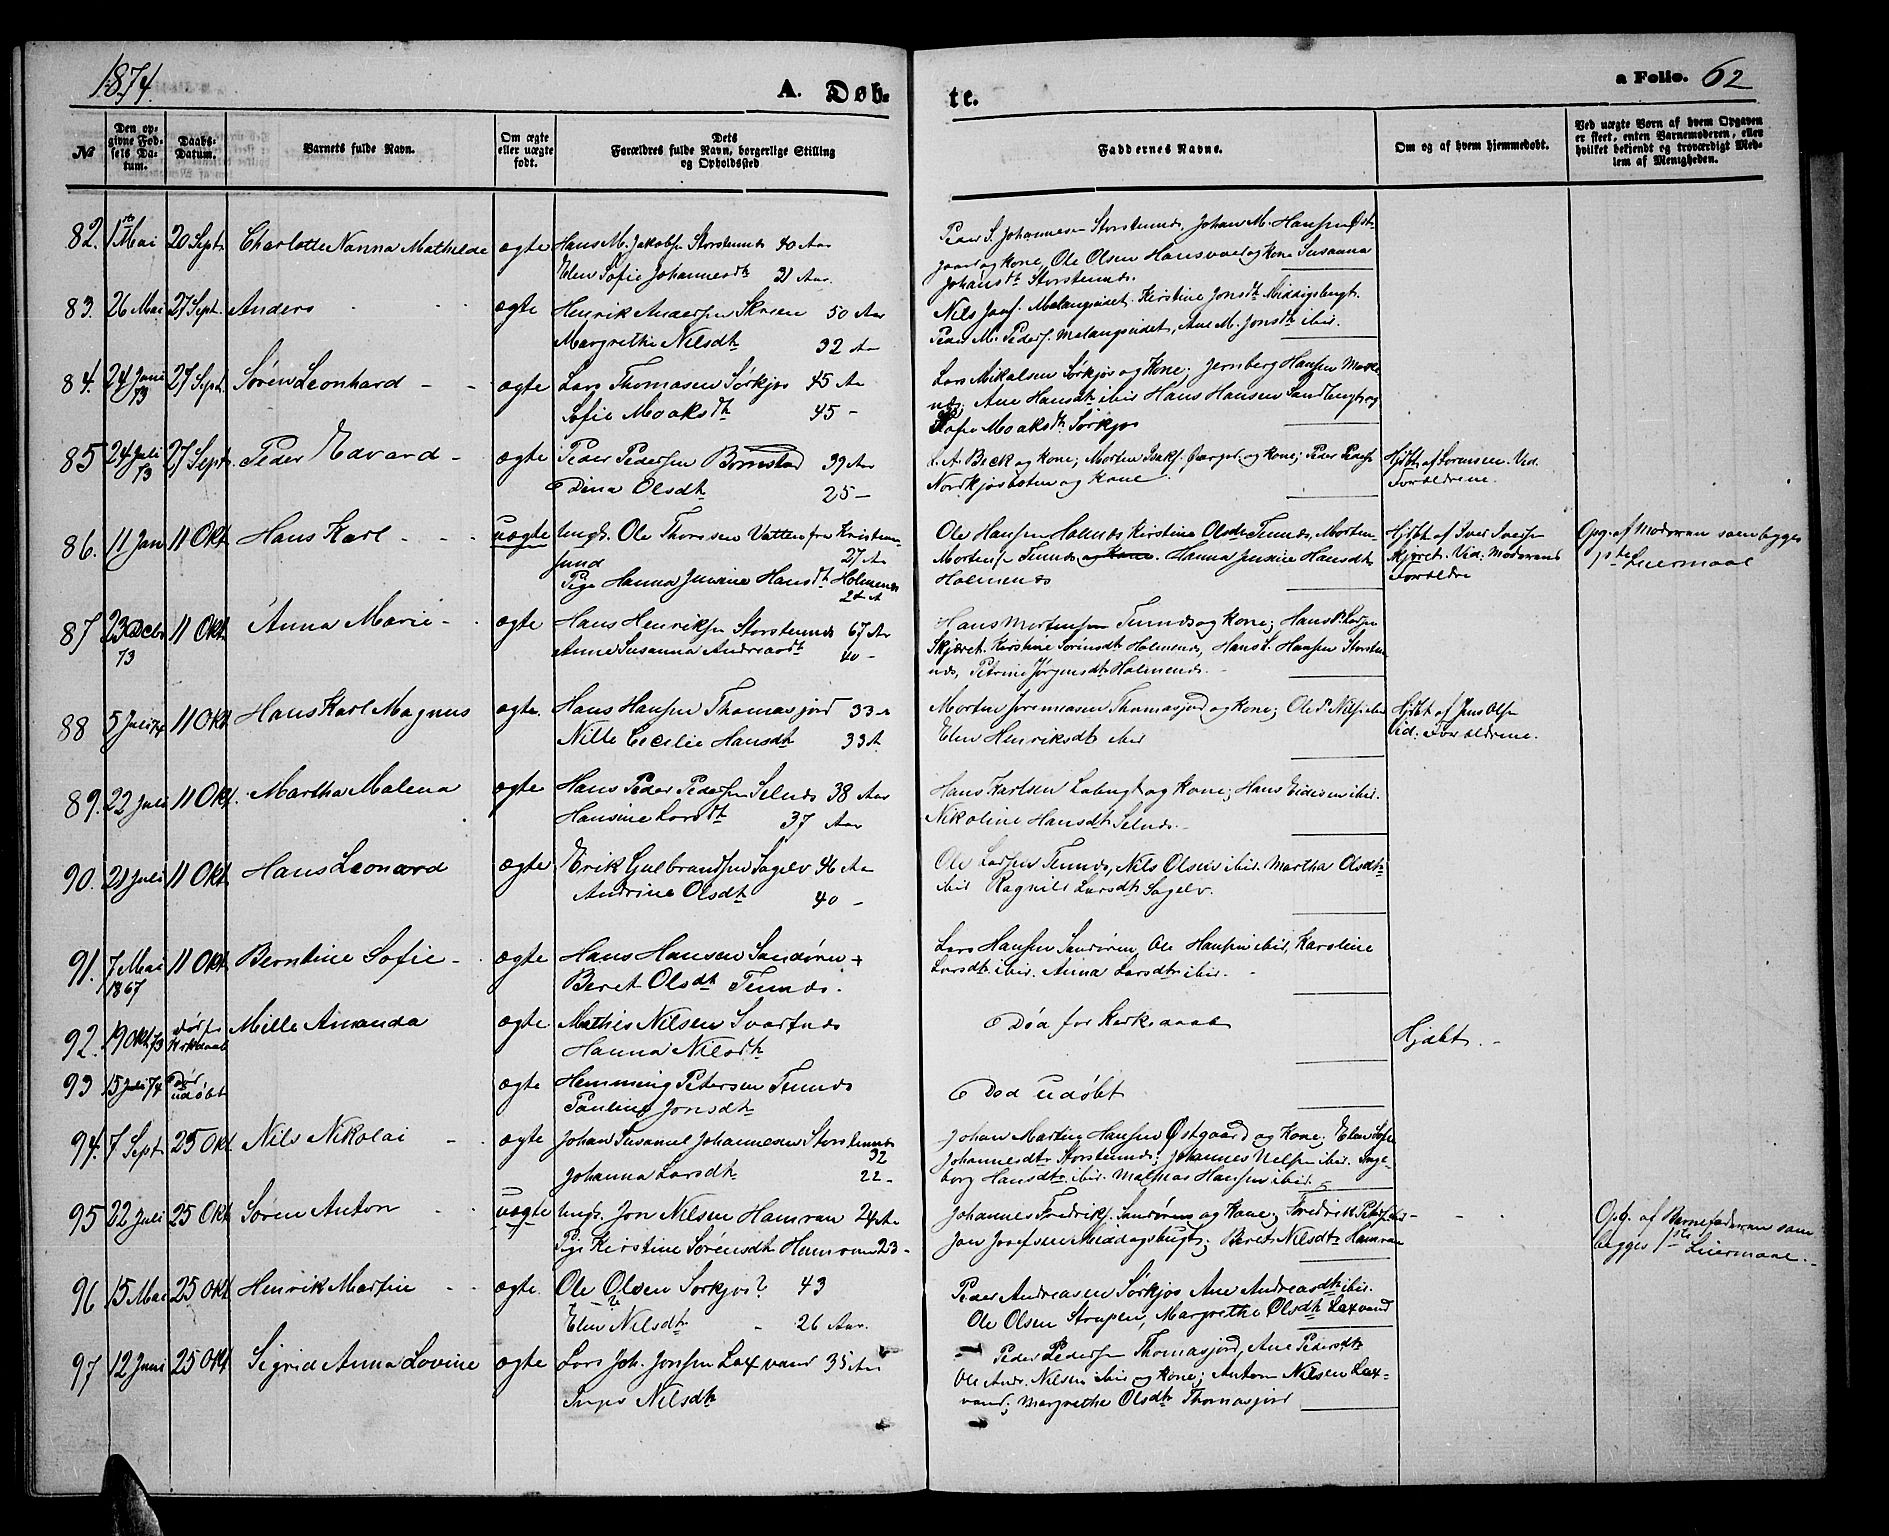 1874.
A. Døb-
te.
a Folio. 62
№
Den op-
givne Fød-
sels Da-
tum.
Daabs-
Datum.
Barnets fulde Navn.
Om ægte
eller uægte
født.
Dets
Forældres fulde Navn, borgerlige Stilling
og Opholdssted
Faddernes Navne.
Om og af hvem hjemmedøbt.
Ved uægte Børn af hvem Opgaven
er skeet, enten Barnemoderen, eller
hvilket bekjendt og troværdigt Med-
lem af Menigheden.
82. 1ste Mai 20 Sept. Charlotte Nanna Mathilde ægte Hans M. Jakobsen Storstennes 40 Aar
Elen Sofie Johannesdt 21 Aar.
Peder S. Johannesen Storstennes, Johan M. Hansen Øst-
gaard og Kone, Ole Olsen Hansvold og Kone Susanna
Johansdt Storstennes.
83. 26 Mai 27 Sept. Anders ægte Henrik Andersen Skreen 50 Aar
Margrethe Nilsdt 32 Aar
Nils Josefs. Malangseidet. Kirstine Jonsdt Middagsbugt.
Peder M. Peders. Malangseidet, Ane M. Jonsdt ibid.
84. 24 Juni 73 27 Sept. Søren Leonhard ægte Lars Thomasen Sørkjos 45 Aa
Sofie Moaksdt 45 -
Lars Mikalsen Sørkjos og Kone; Jernberg Hansen
Ane Hansdt ibid Hans Hansen Sandbugt og
Sofie Moaksdt Sørkjos
85 24 Juli 73 27 Sept. Peder Edvard ægte Peder Pedersen Bomstad 39 Aar
Dina Olsdt 25 -
L. A. Beck og Kone; Morten Isaks. og Kone; Peder Peders.
Nordkjosbotn og Kone.
Hjdbt af Sørensen. Vid.
Forældrene.
86. 11 Jan 11 Okt. Hans Karl uægte Ungk. Ole Thorsen Vatten fra Kristian-
sund 27 Aa
Pige Hanna Jensine Hansdt Holmenes
24 A
Ole Hansen Holmenes Kirstina Olsdt Tennes, Morten
Mortensen Tennes og Kone. Hanna Jensine Hansdt
Holmenes
Hjdbt af Iver Iversen
Skjæret. Vid: Moderens
Forældre
Opg. af Moderen som begges
1ste Leiermaal
87 23 Decbr 73 11 Okt. Anna Marie ægte Hans Henriksen Storstennes 67 Aar
Anne Susanna Andreasdt 40 -
Hans Mortensen Tennes og Kone; Hans P. Larsen
Skjæret. Kirstine Sørensdt Holmenes, Hans L. Hansen Storsten-
nes, Petrine Jørgensdt Holmenes.
88 5 Juli 74 11 Okt Hans Karl Magnus ægte. Hans Hansen Thomasjord 33 Aa
Nille Cecilie Hansdt 33 A
Morten Joremiasen Thomasjord og Kone; Ole P. Nilsen ibid
Elen Henriksdt ibid
Hjdbt af Jens Olsen
Vid: Forældrene.
89. 22 Juli 11 Okt. Martha Malena ægte Hans Peder Pedersen Selnes 38 Aar
Hansine Larsdt 37 Aar
Hans Karlsen Labugt og Kone; Hans Eidesen ibid.
Nikoline Hansdt Selnes.
90. 21 Juli 11 Okt Hans Leonard ægte Erik Gulbrandsen Sagelv 46 Aa
Andrine Olsdt 40 -
Ole Larsen Tennes, Nils Olsen ibid. Martha Olsdt
ibid Ragnild Larsdt Sagelv.
91. 7 Mai 1867 11 Okt Berntine Sofie ægte Hans Hansen Sandøren +
Beret Olsdt Tennes.
Lars Hansen Sandøren, Ole Hansen ibid, Karoline
Larsdt ibid. Anna Larsdt ibid.
92. 19 Okt 73 Død før Kirkdaab Mille Amanda ægte Mathis Nilsen Svartnes
Hanna Nilsdt
Død før Kirkdaab
Hjdbt.
93 15 Juli 74 Død udøbt ægte Hemming Petersen Tennes
Pauline Jonsdt
Død udøbt
94. 7 Sept. 25 Okt. Nils Nikolai ægte Johan Susanul Johannesen Storstennes
32
Johanna Larsdt 22 -
Johan Martin Hansen Østgaard og Kone; Elen Sofie
Johannesdt Storstennes; Johannes Nilsen ibid. Inge-
borg Hansdt ibid. Mathias Hansen ibid.
95 22 Juli 25 Okt Søren Anton uægte Ungk. Jon Nilsen Hamran 24 Aa
Pige Kirstine Sørensdt Hamran 23 -
Johannes Fredriks. Sandøren og Kone; Fredrik Peders ibid
Jon Josefsen Middagsbugt; Beret Nilsdt Hamran
Opg. af Barnefaderen som
begges 1ste Leiermaal.
96 15 Mai 25 Okt Henrik Martin ægte. Ole Olsen Sørkjos? 43
Elen Nilsdt 26 Aar.
Peder Andreasen Sørkjos Ane Andreasdt ibid.
Ole Olsen Strupen, Margrethe Olsdt Laxvand
97 12 Juni 25 Okt. Sigrid Anna Lovine ægte Lars Joh. Jonsen Laxvand 35 Aa
Inger Nilsdt
Peder Pedersen Thomasjord, Ane Pedersdt
Ole Ands. Nilsen ibid og Kone; Anton Nilsen Lax-
vand; Margrethe Olsdt Thomasjord